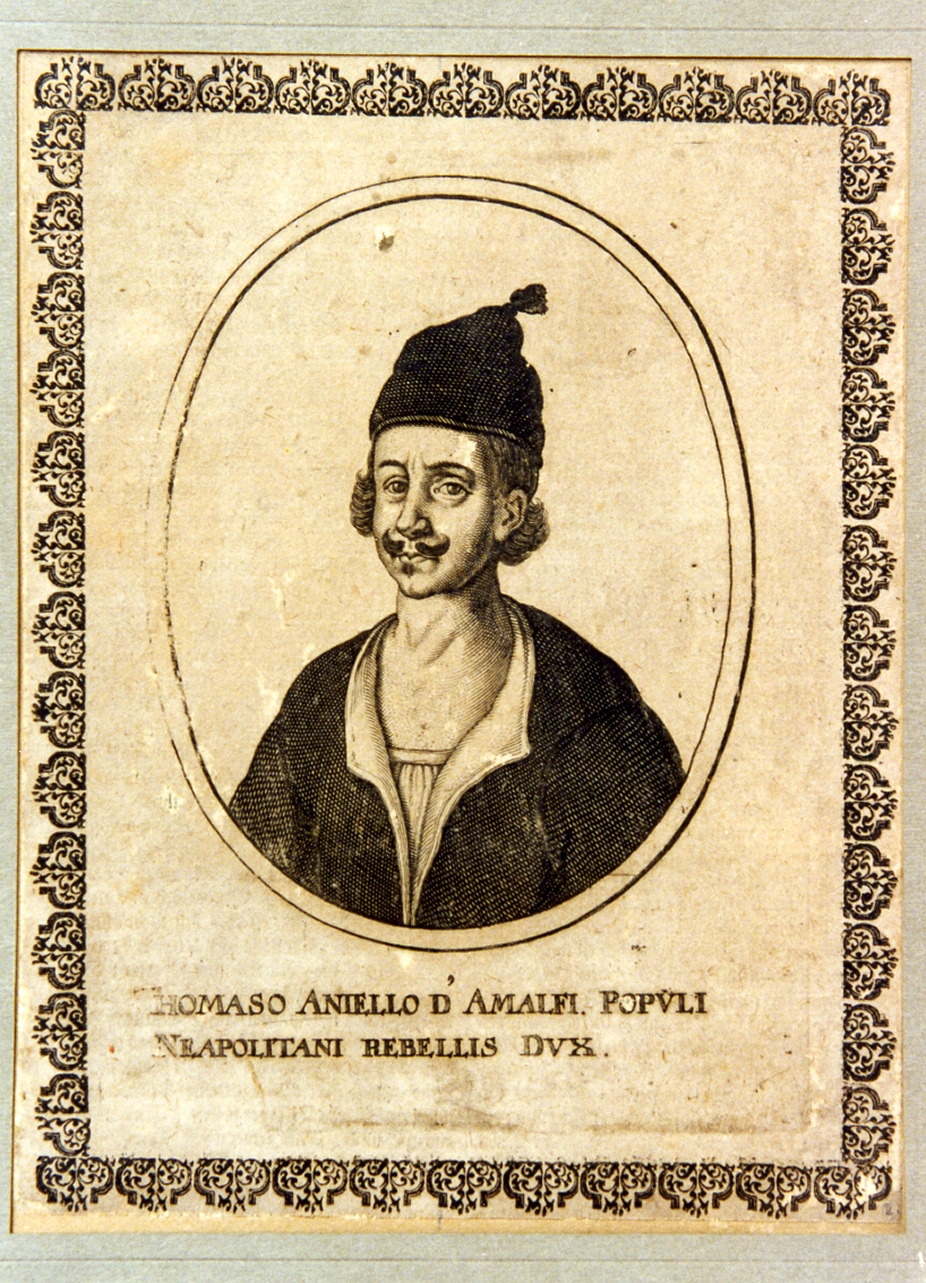 THOMASO ANIELLO D' AMALFI. POPVLI
NEAPOLITANI REBELLIS DVX.